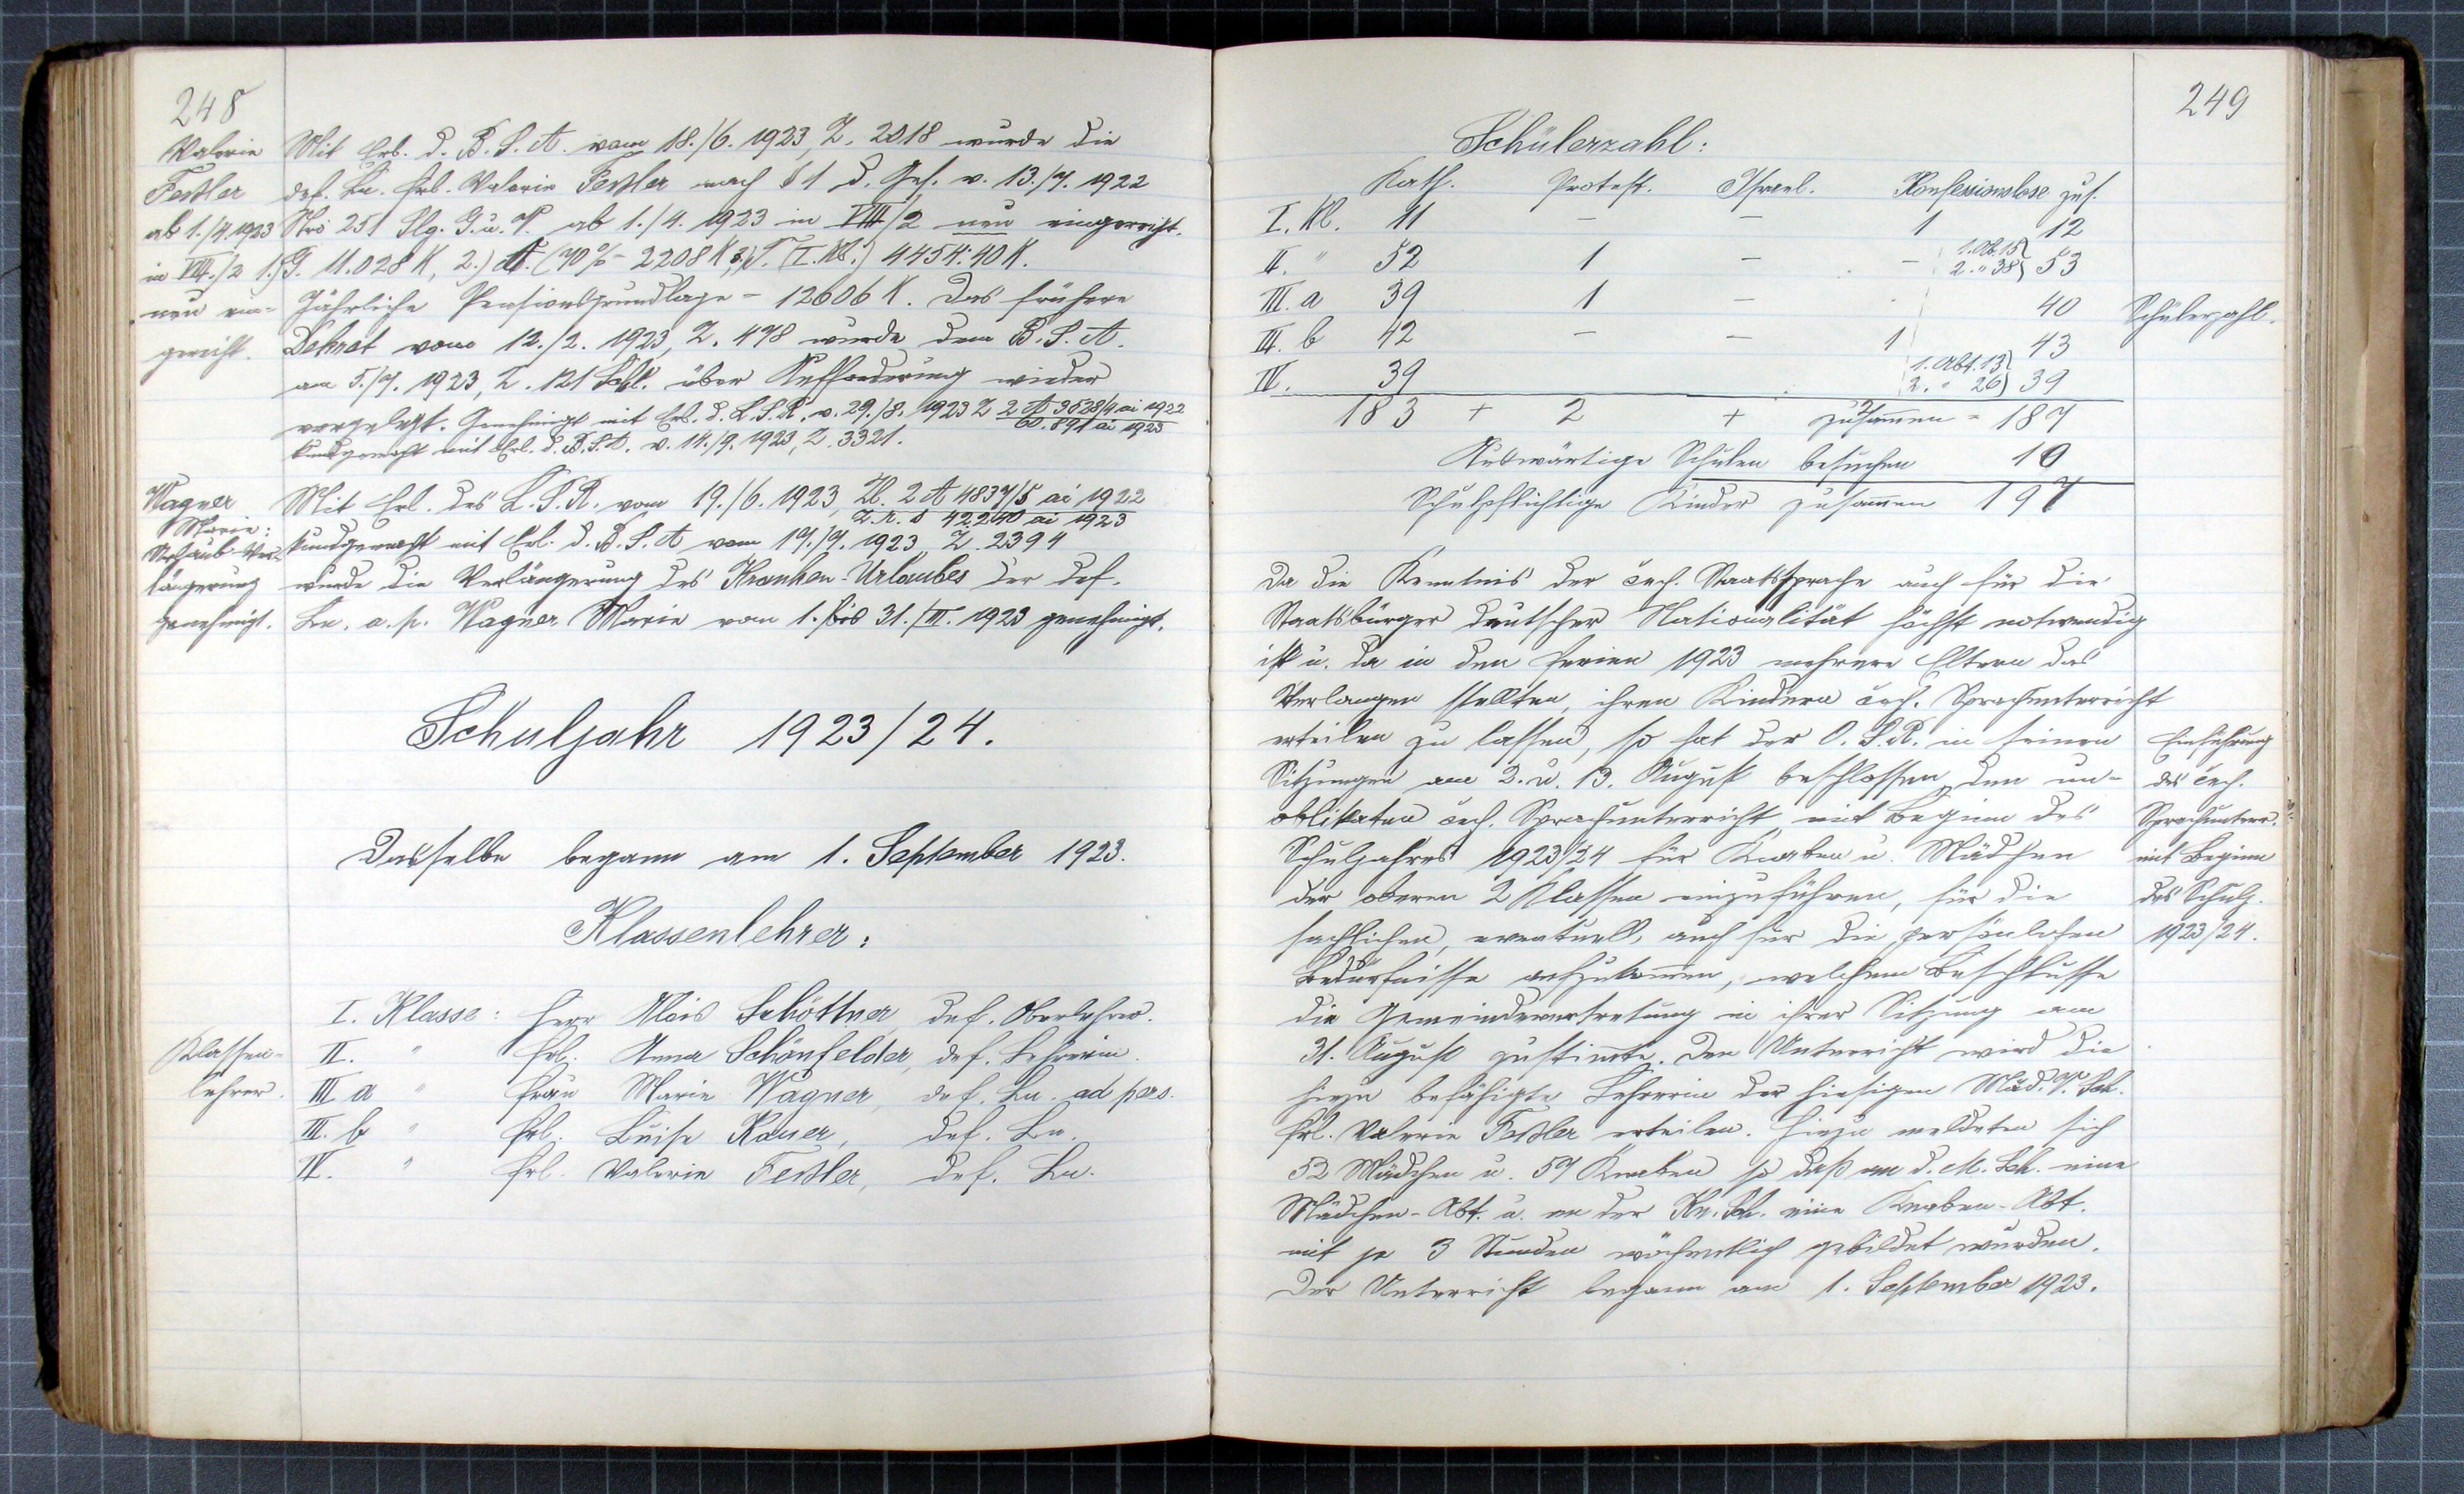 248
Valerie
Feßler
ab 1./4. 1923
in VIII./2
neu ein-
gereiht.
Mit Erl. d. B. S. A. vom 18./6. 1923, Z. 2018 wurde die
def. Ln. Frl. Valerie Feßler nach § 1 d. Ges. v. 13./7. 1922
Nro 251 Slg. G. u. V. ab 1./4. 1923 in VIII/2 neu eingereiht.
1.) G. 11.028 K, 2.) A. (70% - 2208 K, 3.) T. (I. Kl.) 4454·40 K.
Jährliche Pensionsgrundlage - 12606 K. Das frühere
Dekret vom 12./2. 1923, Z. 478 wurde dem B. S. A.
am 5./7. 1923, Z. 121 Schl. über Aufforderung wieder
vorgelegt. Genehmigt mit Erl. d. L. S. R. v. 29./8. 1923 Z 2 A 3528/4 ai 1922
60.891 ai 1923
kundgemacht mit Erl. d. B. S. A. v. 14./9. 1923, Z. 3321.
Wagner
Marie:
Urlaub-Ver-
längerung
genehmigt.
Mit Erl. des L. S. R. vom 19./6. 1923, Zl. 2 A 4837/5 ai 1922
Z. n. s 42.240 ai 1923
kundgemacht mit Erl. d. B. S. A vom 17./7. 1923, Z. 2394
wurde die Verlängerung des Kranken-Urlaubes der def.
Ln. a. p. Wagner Marie vom 1. bis 31./III. 1923 genehmigt.
Schuljahr 1923/24.
Dasselbe begann am 1. September 1923.
Klassenlehrer:
Klassen-
lehrer.
I. Klasse: Herr Alois Schöttner, def. Oberlehrer.
II. " Frl. Anna Schönfelder, def. Lehrerin.
III. a " Frau Marie Wagner, def. Ln. ad pers.
III. b " Frl. Luise Kauer, def. Ln.
IV. " Frl. Valerie Feßler, def. Ln.
249
Schülerzahl:
Kath. Protest. Israel. Konfessionslose zus.
I. Kl. 11 - - 1 12
II. " 52 1 - - 1. Ab. 15 2. " 38 } 53
III. a 39 1 - 40
III. b 42 - - 1 43
IV. 39 1. Abt. 13 2. " 26 } 39
183 + 2 + 2 zusammen = 187
Auswärtige Schulen besuchen 10
Schulpflichtige Kinder zusammen 197
Schülerzahl.
Da die Kenntnis der čech. Staatssprache auch für die
Staatsbürger deutscher Nationalität höchst notwendig
ist u. da in den Ferien 1923 mehrere Eltern das
Verlangen stellten, ihren Kindern čech. Sprachunterricht
erteilen zu lassen, so hat der O. S. R. in seinen
Sitzungen am 2. u. 13. August beschlossen, den un-
obligaten čech. Sprachunterricht mit Beginn des
Schuljahres 1923/24 für Knaben u. Mädchen
der oberen 2 Klassen einzuführen, für die
sachlichen, eventuell auch für die persönlichen
Bedürfnisse aufzukommen, welchem Beschlusse
die Gemeindevertretung in ihrer Sitzung am
31. August zustimmte. Den Unterricht wird die
hiezu befähigte Lehrerin der hiesigen Mäd. V. Sch.
Frl. Valerie Feßler erteilen. Hiezu meldeten sich
52 Mädchen u. 57 Knaben, so daß an d. M. Sch. eine
Mädchen-Abt. u. an der Kn. Sch. eine Knaben-Abt.
mit je 3 Stunden wöchentlich gebildet wurden.
Der Unterricht begann am 1. September 1923.
Einführung
des čech.
Sprachunterr.
mit Beginn
des Schulj.
1923/24.